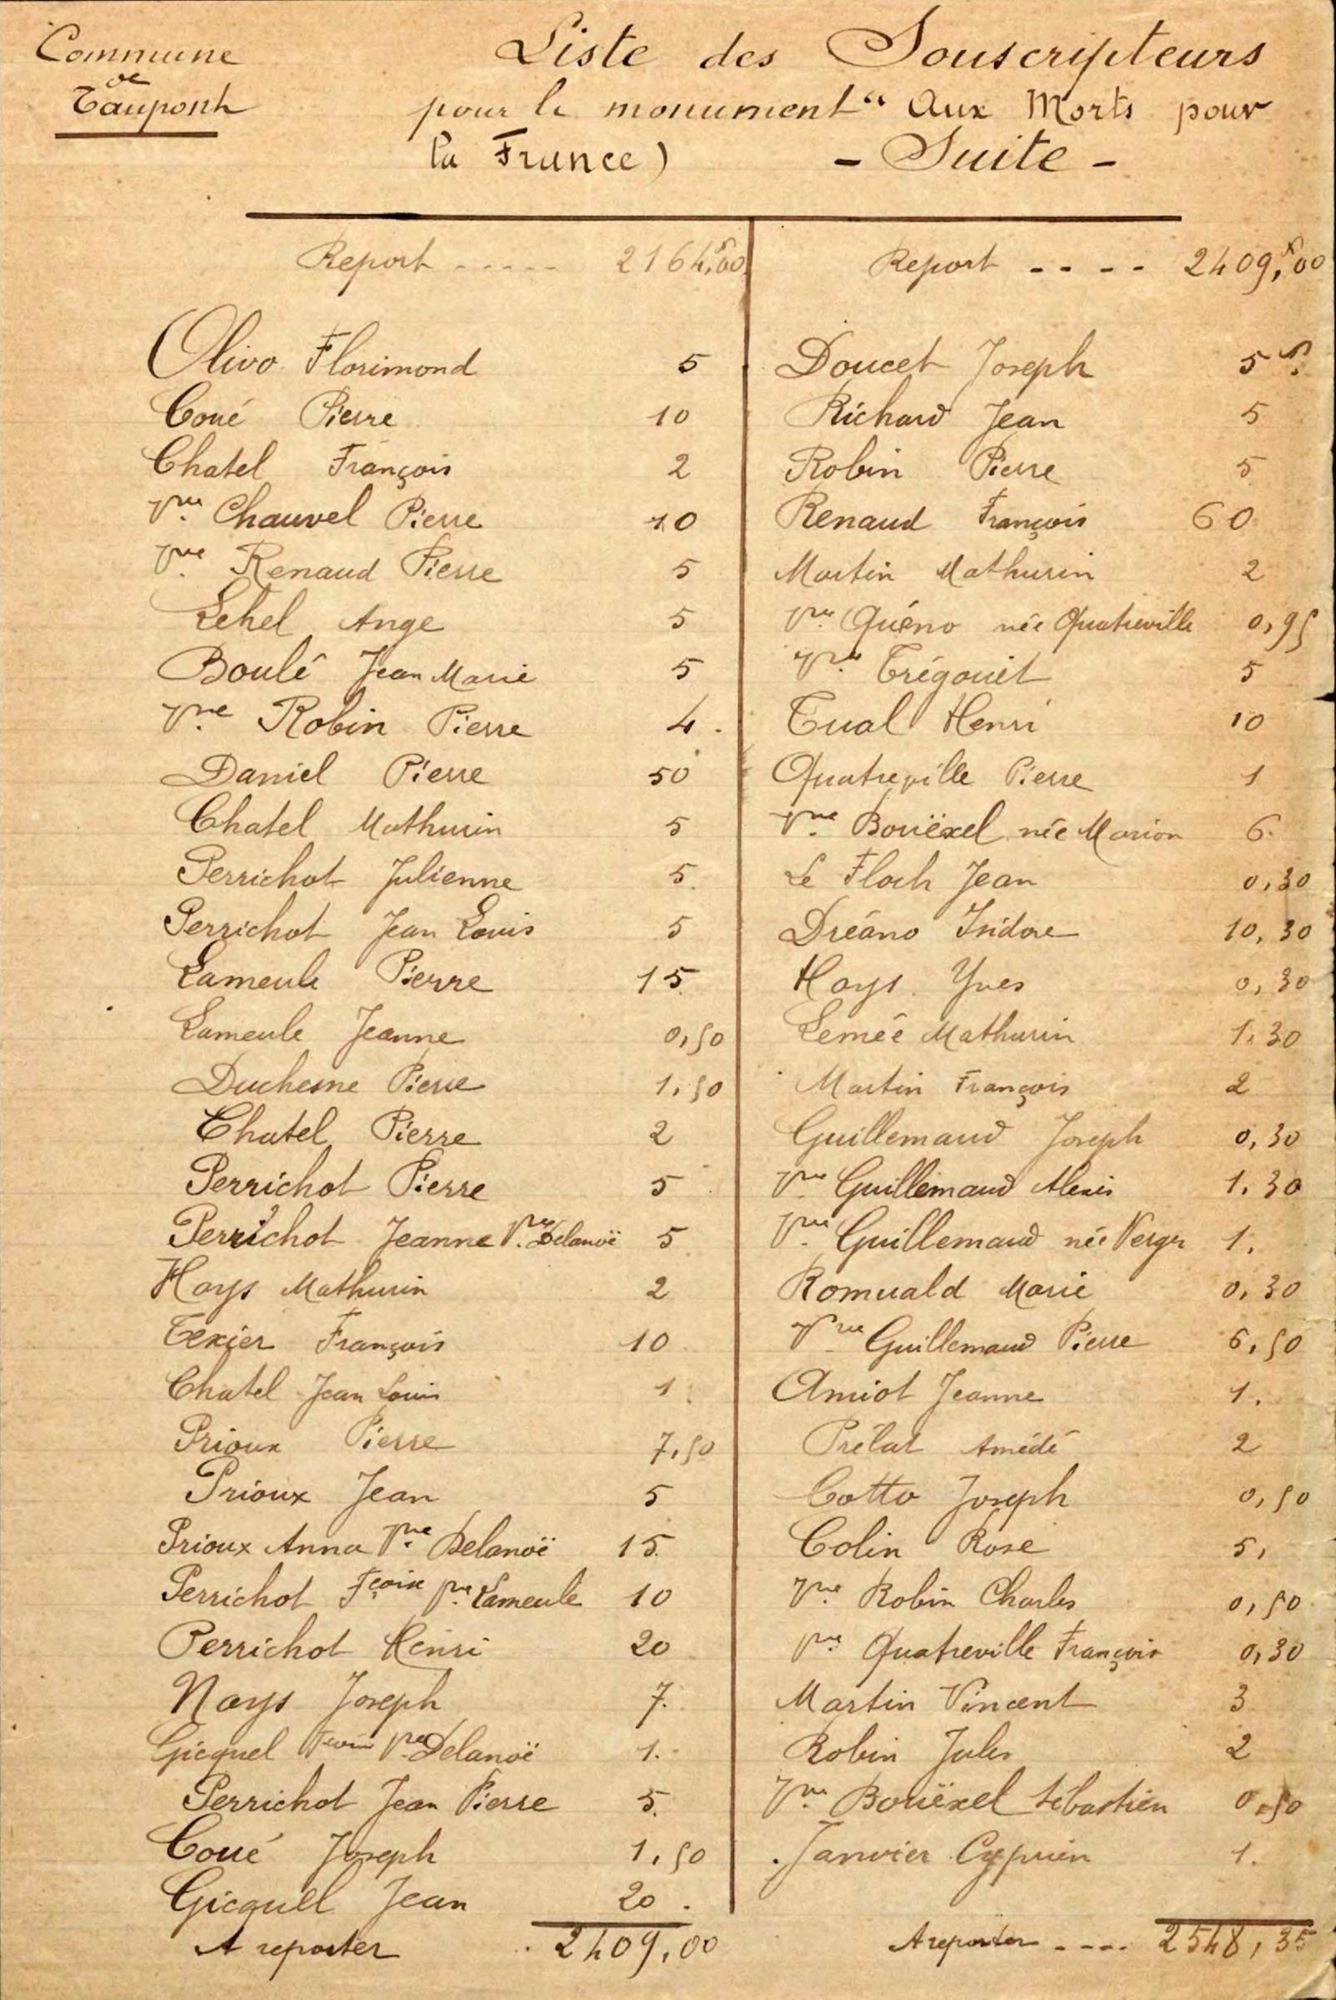 Commune
de
Taupont
Liste des Souscripteurs
pour le monument " Aux Morts pour
la France)
- Suite -
Report ..... 2164,f00
Olivo Florimond 5
Coué Pierre 10
Chatel François 2
Vve Chauvel Pierre 10
Vve Renaud Pierre 5
Lehel Ange 5
Boulé Jean Marie 5
Vve Robin Pierre 4.
Daniel Pierre 50
Chatel Mathurin 5
Perrichot Julienne 5
Perrichot Jean Louis 5
Lameule Pierre 15
Lameule Jeanne 0,50
Duchesne Pierre 1,50
Chatel Pierre 2
Perrichot Pierre 5
Perrichot Jeanne Vve Delanoë 5
Hoys Mathurin 2
Texier François 10
Chatel Jean Louis 1
Prioux Pierre 7,50
Prioux Jean 5
Prioux Anna Vve Delanoë 15
Perrichot Fçoise Vve Lameule 10
Perrichot Henri 20
Noys Joseph 7.
Gicquel Vve Delanoë 1.
Perrichot Jean Pierre 5.
Coué Joseph 1,50
Gicquell Jean 20.
A reporter 2409,00
Report .... 2409,f00
Doucet Joseph 5 f.
Richard Jean 5
Robin Pierre 5
Renaud François 60
Martin Mathurin 2
Vve Quéno née Quatreville 0,95
Vve Trégouët 5
Tual Henri 10
Quatreville Pierre 1
Vve Bouëxel née Marion 6.
Le Floch Jean 0,30
Dréano Isidore 10,30
Hoys Yves 0,30
Lemée Mathurin 1.30
Martin François 2
Guillemaud Joseph 0,30
Vve Guillemaud Alexis 1.30
Vve Guillemaud née Verger 1.
Romuald Marie 0,30
Vve Guillemaud Pierre 6,50
Amiot Jeanne 1.
Prélat Amédé 2
Cotto Joseph 0,50
Colin Rose 5,
Vve Robin Charles 0,50
Vve Quatreville François 0,30
Martin Vincent 3
Robin Jules 2
Vve Bouëxel Sébastien 0,50
Janvier Cyprien 1.
A reporter .... 2548,35